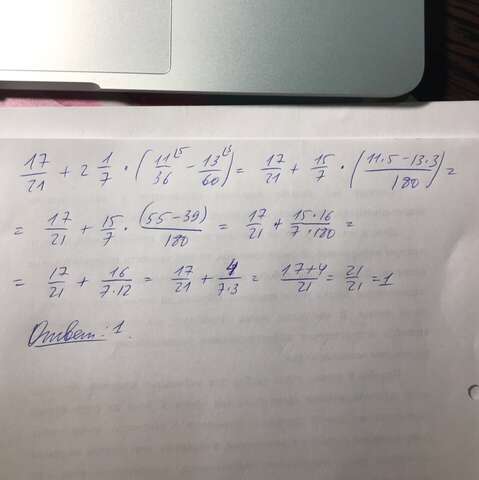 17/21 + 2 1/7 · (11^5/36 − 13^3/60) = 17/21 + 15/7 · (11·5−13·3/180) =
= 17/21 + 15/7 · (55−39)/180 = 17/21 + 15·16/7·180 =
= 17/21 + 16/7·12 = 17/21 + 4/7·3 = 17+4/21 = 21/21 = 1
Ответ: 1.